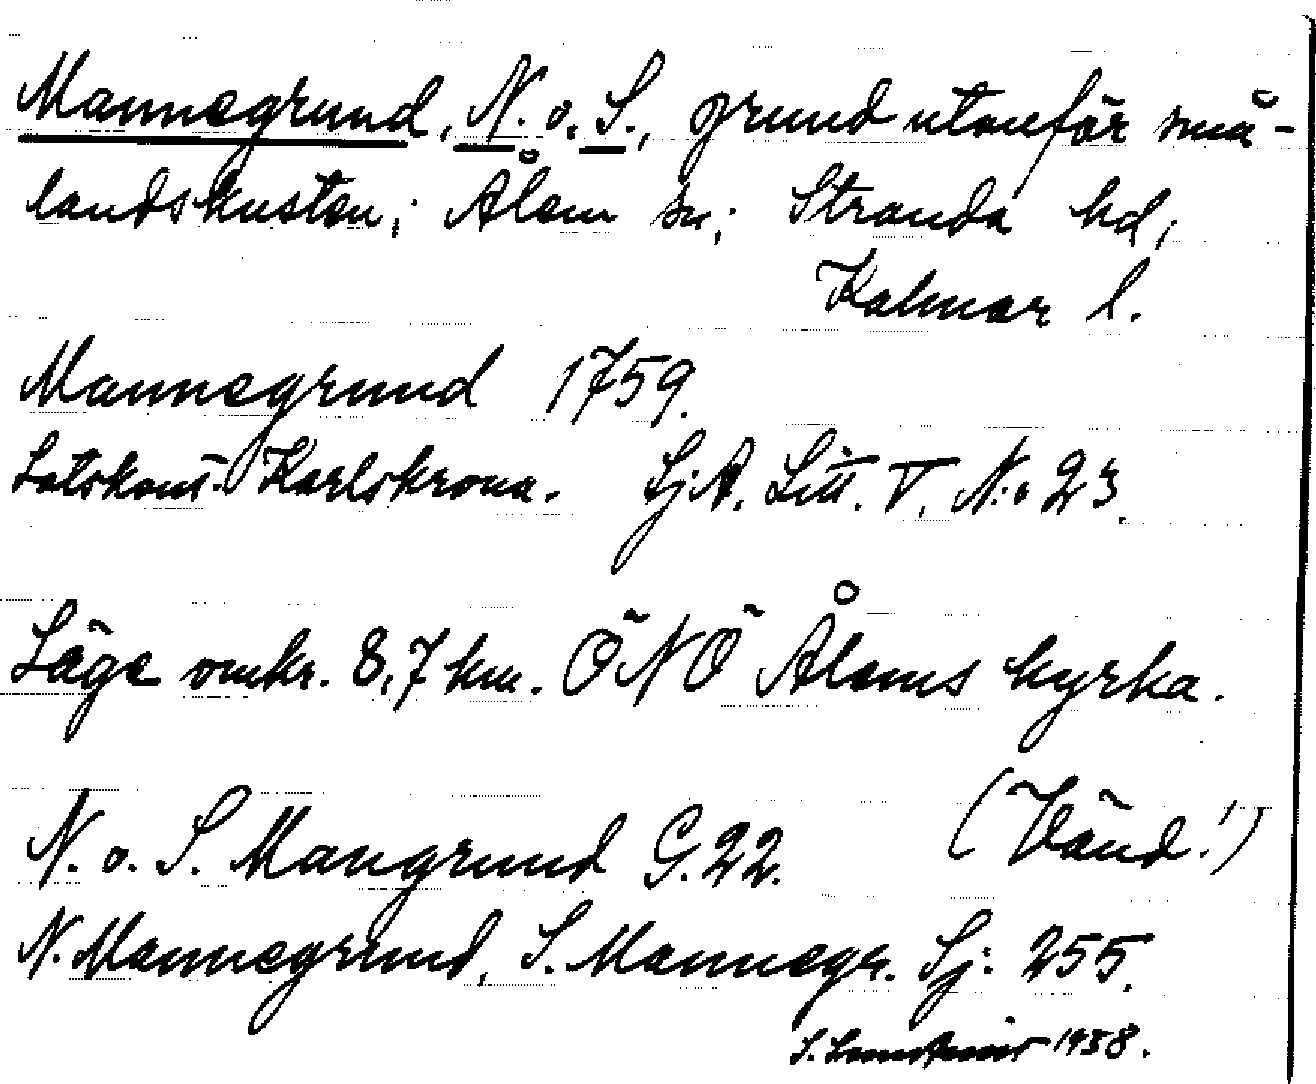 Mannegrund, N. o. S., grund utanför små-
landskusten; Ålem sn; Stranda hd;
Kalmar l.
Mannegrund 1759.
Lotskont. Karlskrona. Sj.A. Litt. V. N:o 23.
Läge omkr. 8,7 km. ÖNÖ Ålems kyrka.
(Vänd!)
N. o. S. Mangrund G. 22.
N. Mannegrund, S. Mannegr. Sj: 255.
S. 1938.